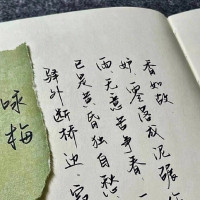 咏梅
驿外断桥边,寂
已是黄昏独自愁
雨。无意苦争春,
妒。零落成泥碾
香如故